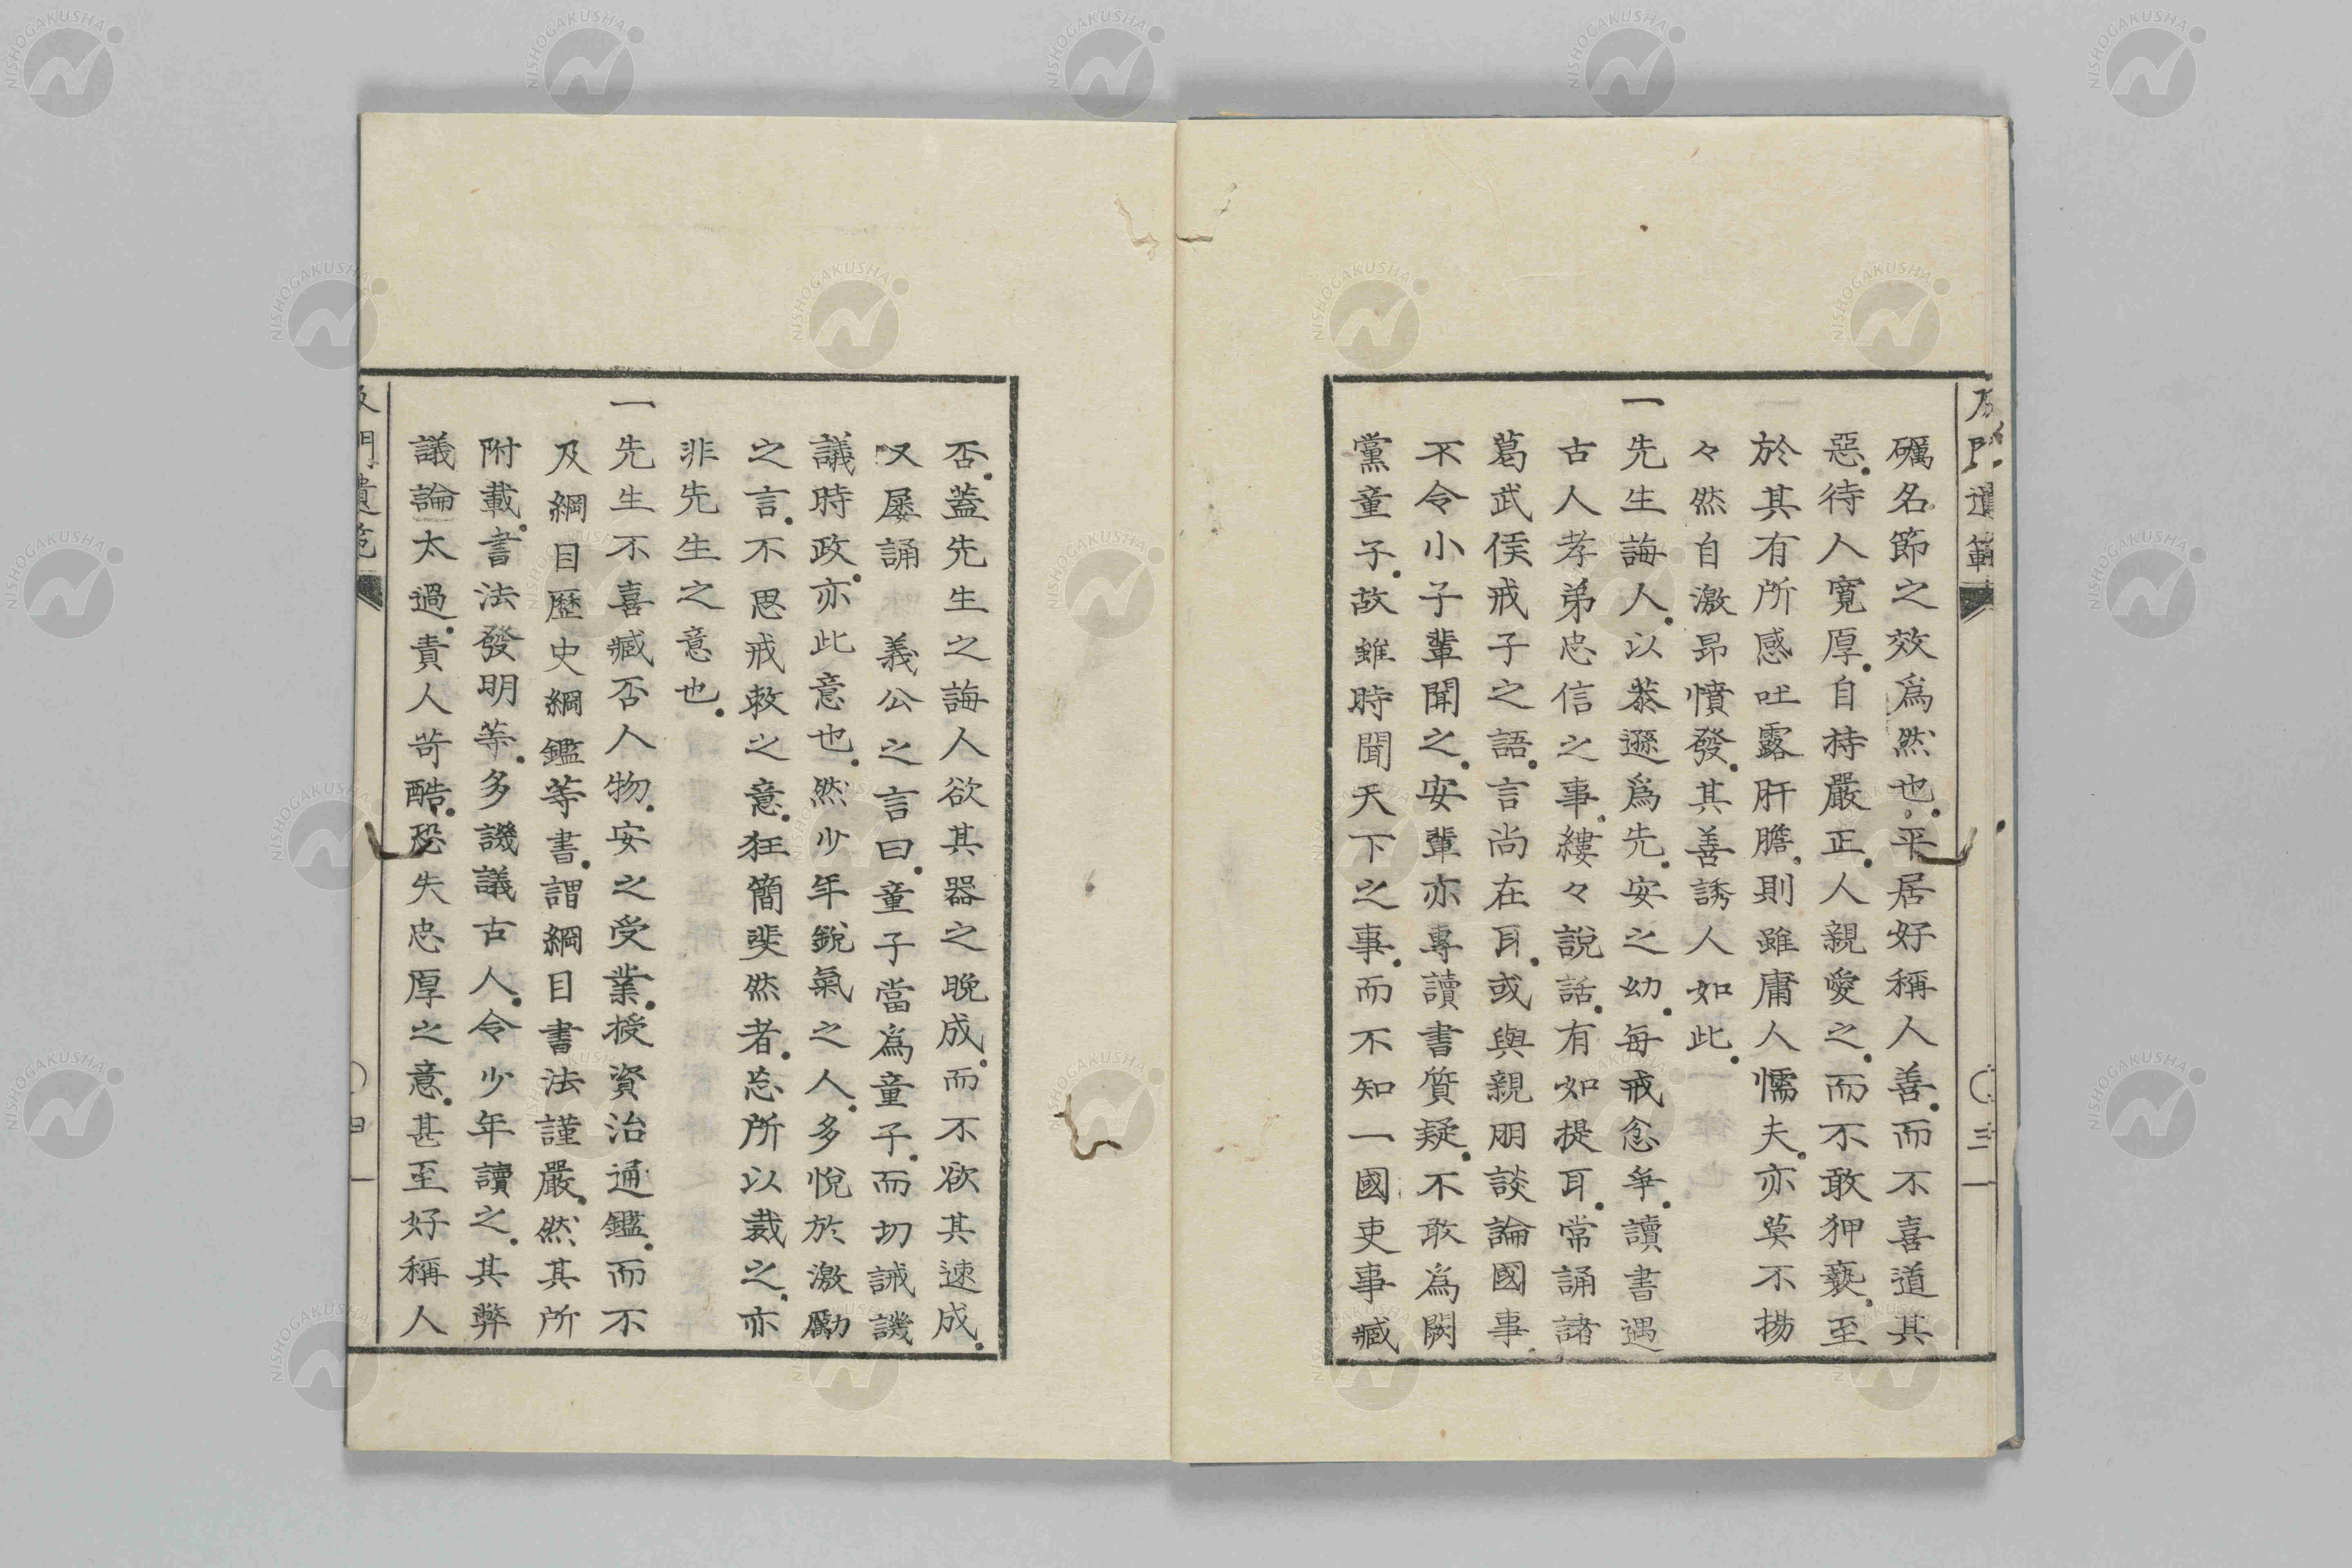 及門遺範
〇三
礪名節之效爲然也。平居好稱人善。而不喜道其
惡。待人寬厚。自持嚴正。人親愛之。而不敢狎褻。至
於其有所感吐露肝膽。則雖庸人懦夫。亦莫不揚
々然自激昻憤發。其善誘人如此。
一先生誨人。以恭遜爲先。安之幼。每戒忿爭。讀書遇
古人孝弟忠信之事。縷々說話。有如提耳。常誦諸
葛武侯戒子之語。言尚在耳。或與親朋談論國事。
不令小子輩聞之。安輩亦專讀書質疑。不敢爲闕
黨童子。故雖時聞天下之事。而不知一國吏事臧
否。蓋先生之誨人欲其器之晚成。而不欲其速成。
又屢誦 義公之言曰。童子當爲童子。而切誡譏
議時政。亦此意也。然少年銳氣之人。多悅於激勵
之言。不思戒敕之意。狂簡斐然者。忘所以裁之。亦
非先生之意也。
一先生不喜臧否人物。安之受業。授資治通鑑。而不
及綱目歷史綱鑑等書。謂綱目書法謹嚴。然其所
附載。書法發明等。多譏議古人。令少年讀之。其弊
議論太過。責人苛酷。恐失忠厚之意。甚至好稱人
及門遺範
〇四
NISHOGAKUSHA